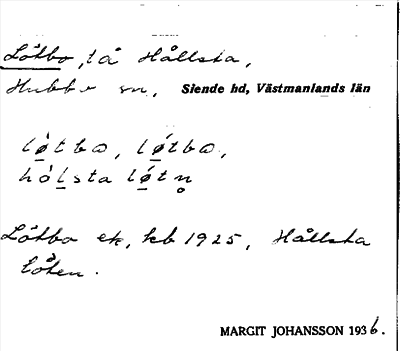 Lötbo, tå Hållsta,
Hubbo sn, Siende hd, Västmanlands län
lø̀tbo, lǿtbo,
hòlsta lǿtn̥
Lötbo ek, kb 1925, Hållsta
löten.
MARGIT JOHANSSON 1936.